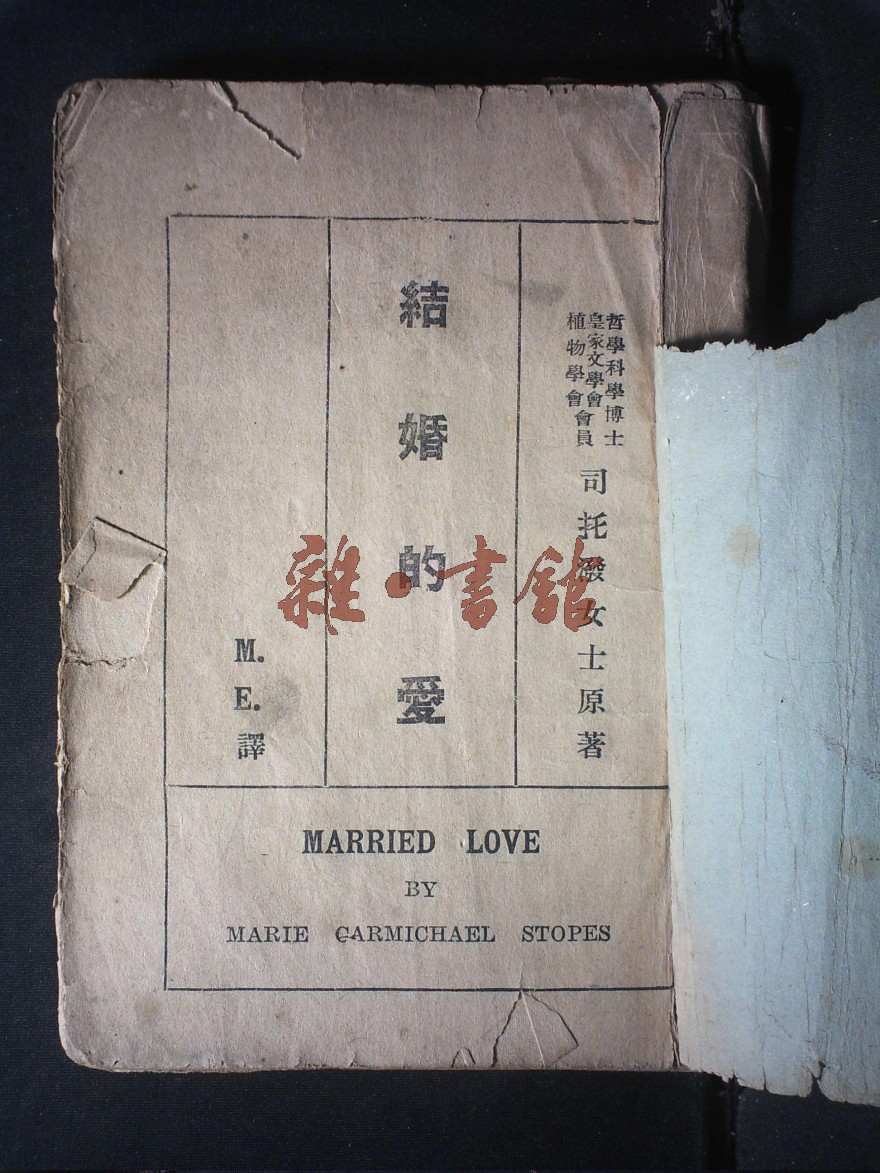 哲學科學博士
皇家文學會
植物學會會員
司托潑女士原著
結婚的愛
M.E.譯
MARRIED LOVE
BY
MARIE CARMICHAEL STOPES
雜·書館